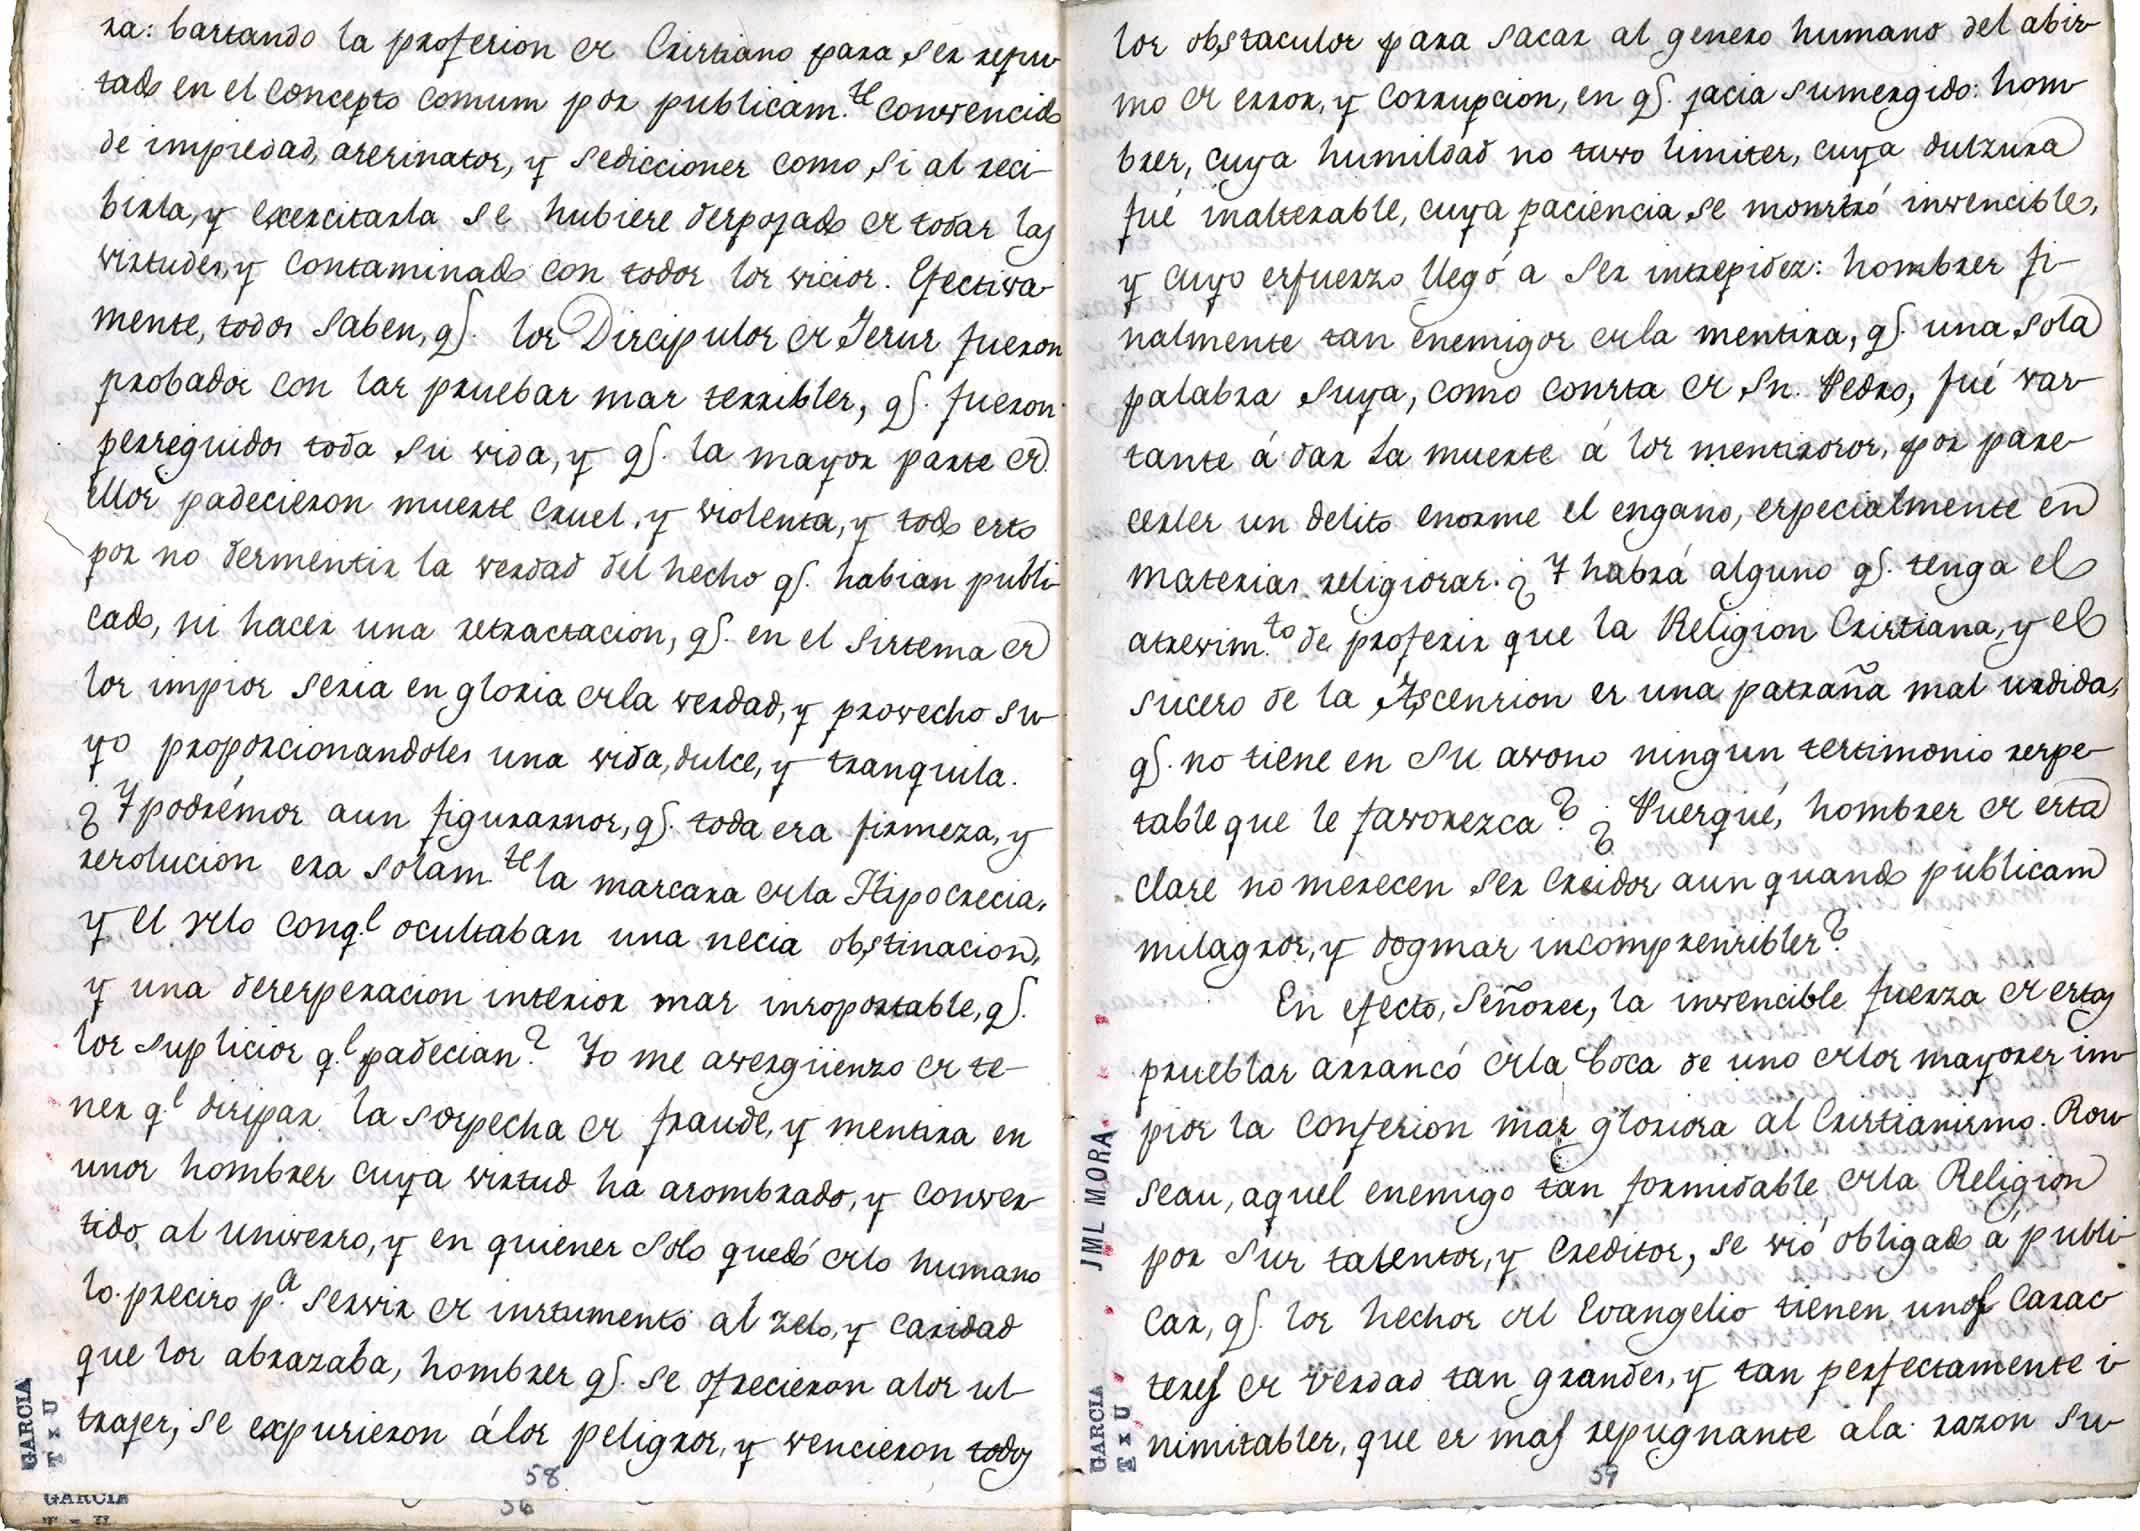 ra: bastando la profesion de Cristiano para ser repu-
tado en el concepto comum por publicam.te convencido
de impiedad, asesinatos, y sedicciones como si al reci-
birla, y exercitarla se hubiese despojado de todas las
virtudes, y contaminado con todos los vicios. Efectiva-
mente, todos saben, q.e los Discipulos de Jesus fueron
probados con las pruebas mas terribles, q.e fueron
perseguidos toda su vida, y q.e la mayor parte de
ellos padecieron muerte cruel, y violenta, y todo esto
por no desmentir la verdad del hecho q.e habian publi-
cado, ni hacer una retractacion, q.e en el sistema de
los impios seria en gloria de la verdad, y provecho su-
yo proporcionandoles una vida, dulce, y tranquila.
¿Y podrémos aun figurarnos, q.e toda esa firmeza, y
resolucion era solam.te la mascara de la Hipocrecia,
y el velo con q.e ocultaban una necia obstinacion,
y una desesperacion interior mas insoportable, q.e
los suplicios q.e padecian? Yo me avergüenzo de te-
ner q.e disipar la sospecha de fraude, y mentira en
unos hombres cuya virtud ha asombrado, y conver-
tido al universo, y en quienes solo quedó de lo humano
lo preciso p.a servir de instumento al zelo, y caridad
que los abrazaba, hombres q.e se ofrecieron a los ul-
trajes, se expusieron á los peligros, y vencieron todos
58
GARCIA
T x U
GARCIA
T x U
56
los obstaculos para sacar al genero humano del abis-
mo de error, y corrupcion, en q.e jacia sumergido: hom-
bres, cuya humildad no tuvo limites, cuya dulzura
fué inalterable, cuya paciencia se monstró invencible,
y cuyo esfuerzo llegó a ser intrepidez: hombres fi-
nalmente tan enemigos de la mentira, q.e una sola
palabra suya, como consta de Sn. Pedro, fué vas-
tante á dar la muerte á los mentirosos, por pare-
cerles un delito enorme el engano, especialmente en
materias religiosas. ¿Y habrá alguno q.e tenga el
atrevim.to de proferir que la Religion Cristiana, y el
suceso de la Ascension es una patraña mal urdida,
q.e no tiene en su avono ningun testimonio respe-
table que le favorezca? ¿Puesqué, hombres de esta
clase no merecen ser creidos aun quando publicam
milagros, y dogmas incomprensibles?
En efecto, Señores, la invencible fuerza de estas
prueblas arrancó de la boca de uno de los mayores im-
pios la confesion mas gloriosa al Cristianismo. Rou-
seau, aquel enemigo tan formidable de la Religion
por sus talentos, y Creditos, se vió obligado á publi-
car, q.e los hechos del Evangelio tienen unos carac-
teres de verdad tan grandes, y tan perfectamente i-
nimitables, que es mas repugnante a la razon su-
59
JML MORA
GARCIA
T x U